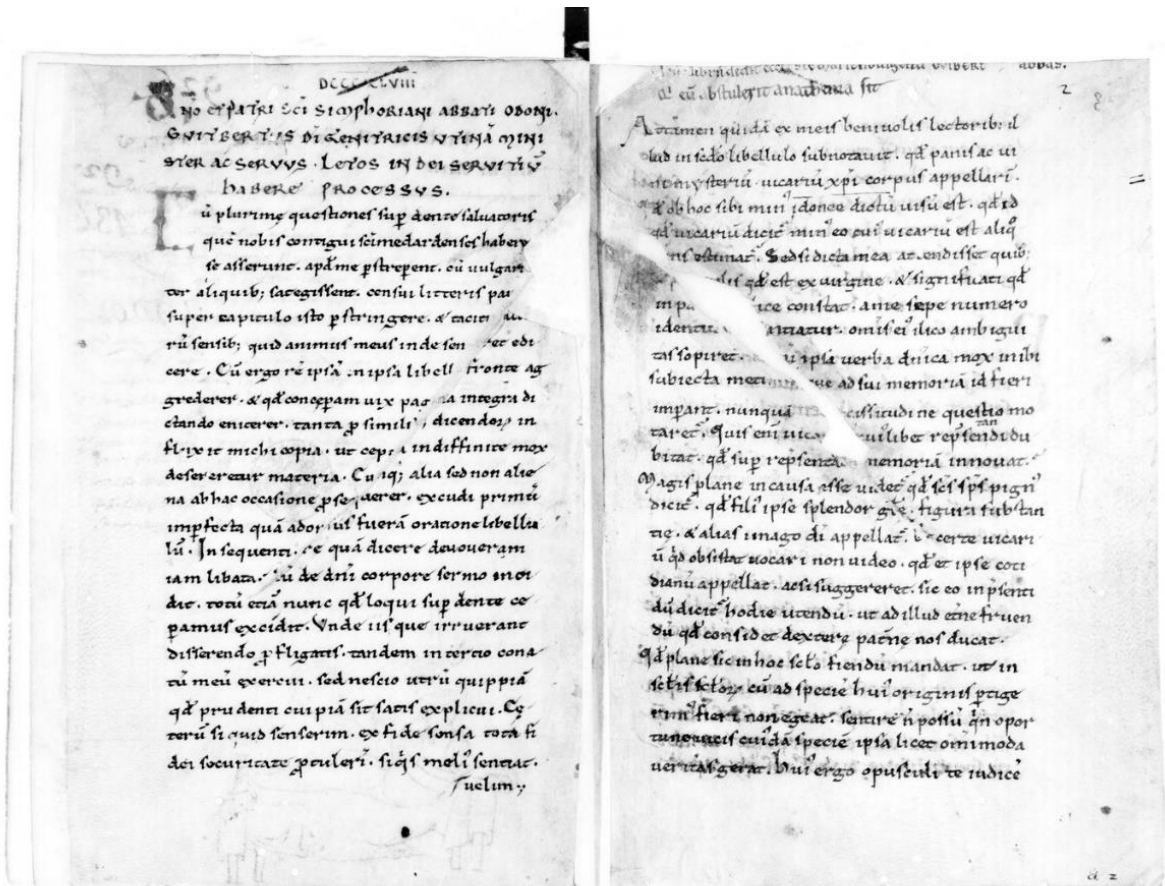 DCCCCXLVIII
DNO ET PATRI SCI SIMPHORIANI ABBATI ODONI.
GVITBERTUS DI GENITRICIS VTINĀ MINI
STER AC SERVVS. LETOS IN DEI SERVITIŪ
HABERE PROCESSVS.
Cū plurimę questiones sup dente salvatoris
quē nobis contigui sci medardenses habere
se asserunt. apd me pstrepent. cū vulgari
ter aliquib; sategissent. consui litteris
super capitulo isto pstringere. & tacite
rū sensib; quid animus meus inde sen ret edi
cere. Cū ergo rē ipsā in ipsa libell fronte ag
grederer. & qd concęperam vix pagina integra di
ctando eniterer. tanta p simili dicendoꝝ in
flixit michi copia. ut cepta indiffinite mox
desereretur materia. Cūqꝫ alia sed non alie
na ab hac occasione p se. excudi primū
impfecta quā adorsus fuerā oratione libellu
lū. In sequenti. re quā dicere devoveram
iam libata. cū de dni corpore sermo inci
dit. totū etiā nunc qd loqui sup dente ce
pamus excidit. Vnde iis que irruerant
disserendo pfligatis. tandem in tercio cona
tū meū exercui. sed nescio utrū quippiā
qd prudenti cuipiā sit satis explicui. Cę
terū si quid senserim. ex fide sonsa tota fi
dei securitate ptuleri. siqis meli sentiat.
velim
abbas.
Qi eū abstulerit anathema sit
2
Attamen quidā ex meis benivolis lectorib; il
lud in scdo libellulo subnotavit. qd panis ac vi
ni mysteriū. vicariū xpi corpus appellari.
qd ob hoc sibi min idonee dictū visū est. qd id
qd vicariū dicit min eo cui vicariū est aliq
nis estimat. Sed si dicta mea attendisset quib;
qd est ex virgine. & significati qd
in constat. a me sepe numero
omis ei ilico ambigui
tas sopiret. ipsa verba dnica mox inibi
subiecta ad sui memoriā id fieri
impant. nunquā vicissitudine questio mo
taret. Quis eni vicariū cuilibet repsentandi du
bitat. qd sup repsenta memoriā innovat.
Magis plane in causa esse videt qd scs sps pign
dicit. qd fili ipse splendor glę. figura substan
tię. & alias imago di appellat. certe vicari
ū qd obsistat vocari non video. qd et ipse coti
dianū appellat. acsi suggereret. sic eo in psenti
dū dicit hodie utendū. ut ad illud etnę fruen
dū qd consid& dexterę patnę nos ducat.
Qd plane sic in hoc sclo fiendū mandat. ut in
sclis scloꝝ cū ad speciē hui originis ptige
rim fieri non egeat. sentire n possū qn opor
tune vicis cuidā speciē ipsa licet omimoda
veritas gerat. Hui ergo opusculi te iudicē
a 2